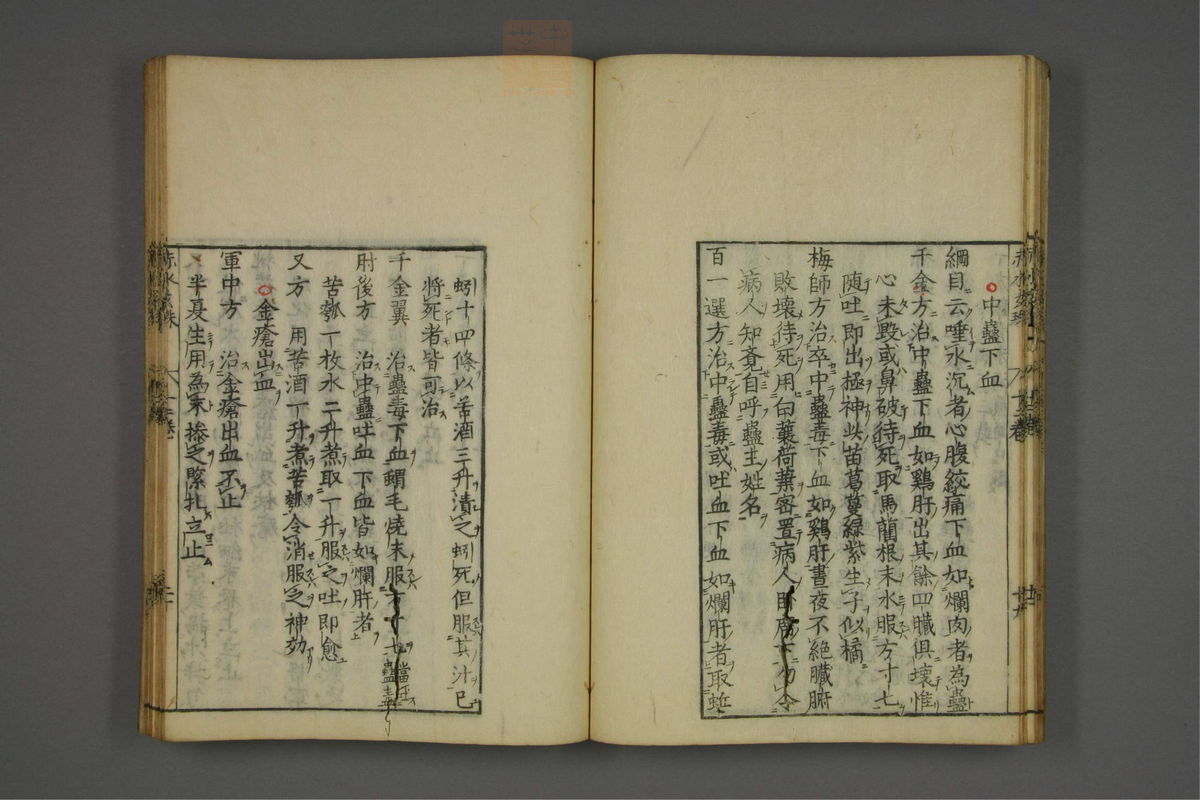 中蠱下血
綱目云唾水沉者心腹絞痛下血如爛肉者為蠱
千金方治中蠱下血如鷄肝出其餘四臟俱壞惟
心未毀或鼻破待死取馬藺根末水服方寸七
随吐即出極神此苗葛蔓緑紫生子似橘
梅師方治卒中蠱毒下血如鷄肝晝夜不絕臟腑
敗壞待死用白蘘荷葉密置病人卧席下勿令
病人知竟自呼蠱主姓名
百一選方治中蠱毒或吐血下血如爛肝者取蚯
蚓十四條以苦酒三升漬之蚓死但服其汁已
將死者皆可治
千金翼 治蠱毒下血蝟毛燒末服方寸七當吐蠱毒
肘後方 治中蠱吐血下血皆如爛肝者
苦瓠一枚水二升煮取一升服之吐即愈
又方 用苦酒一升煮苦瓠令消服之神効
金瘡出血
軍中方 治金瘡出血不止
半夏生用為末摻之緊扎立止